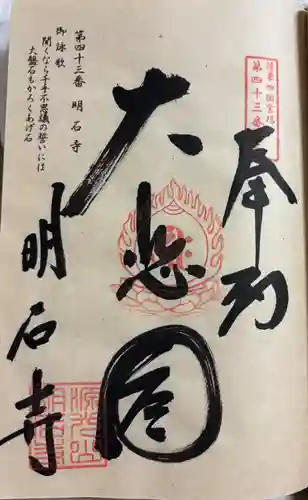 奉納
第四十三番
大悲閣
第四十三番 明石寺
御詠歌
聞くならく千手不思議の誓いには
大盤石もかろくあげ石
明石寺